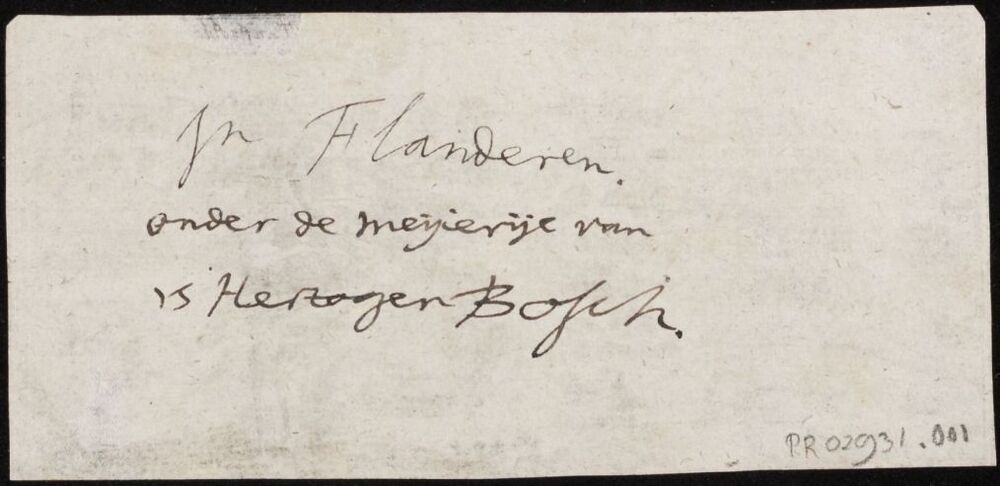 Jn Flanderen.
onder de meijerije van
's Hertogen Bosch.
PR02931.001